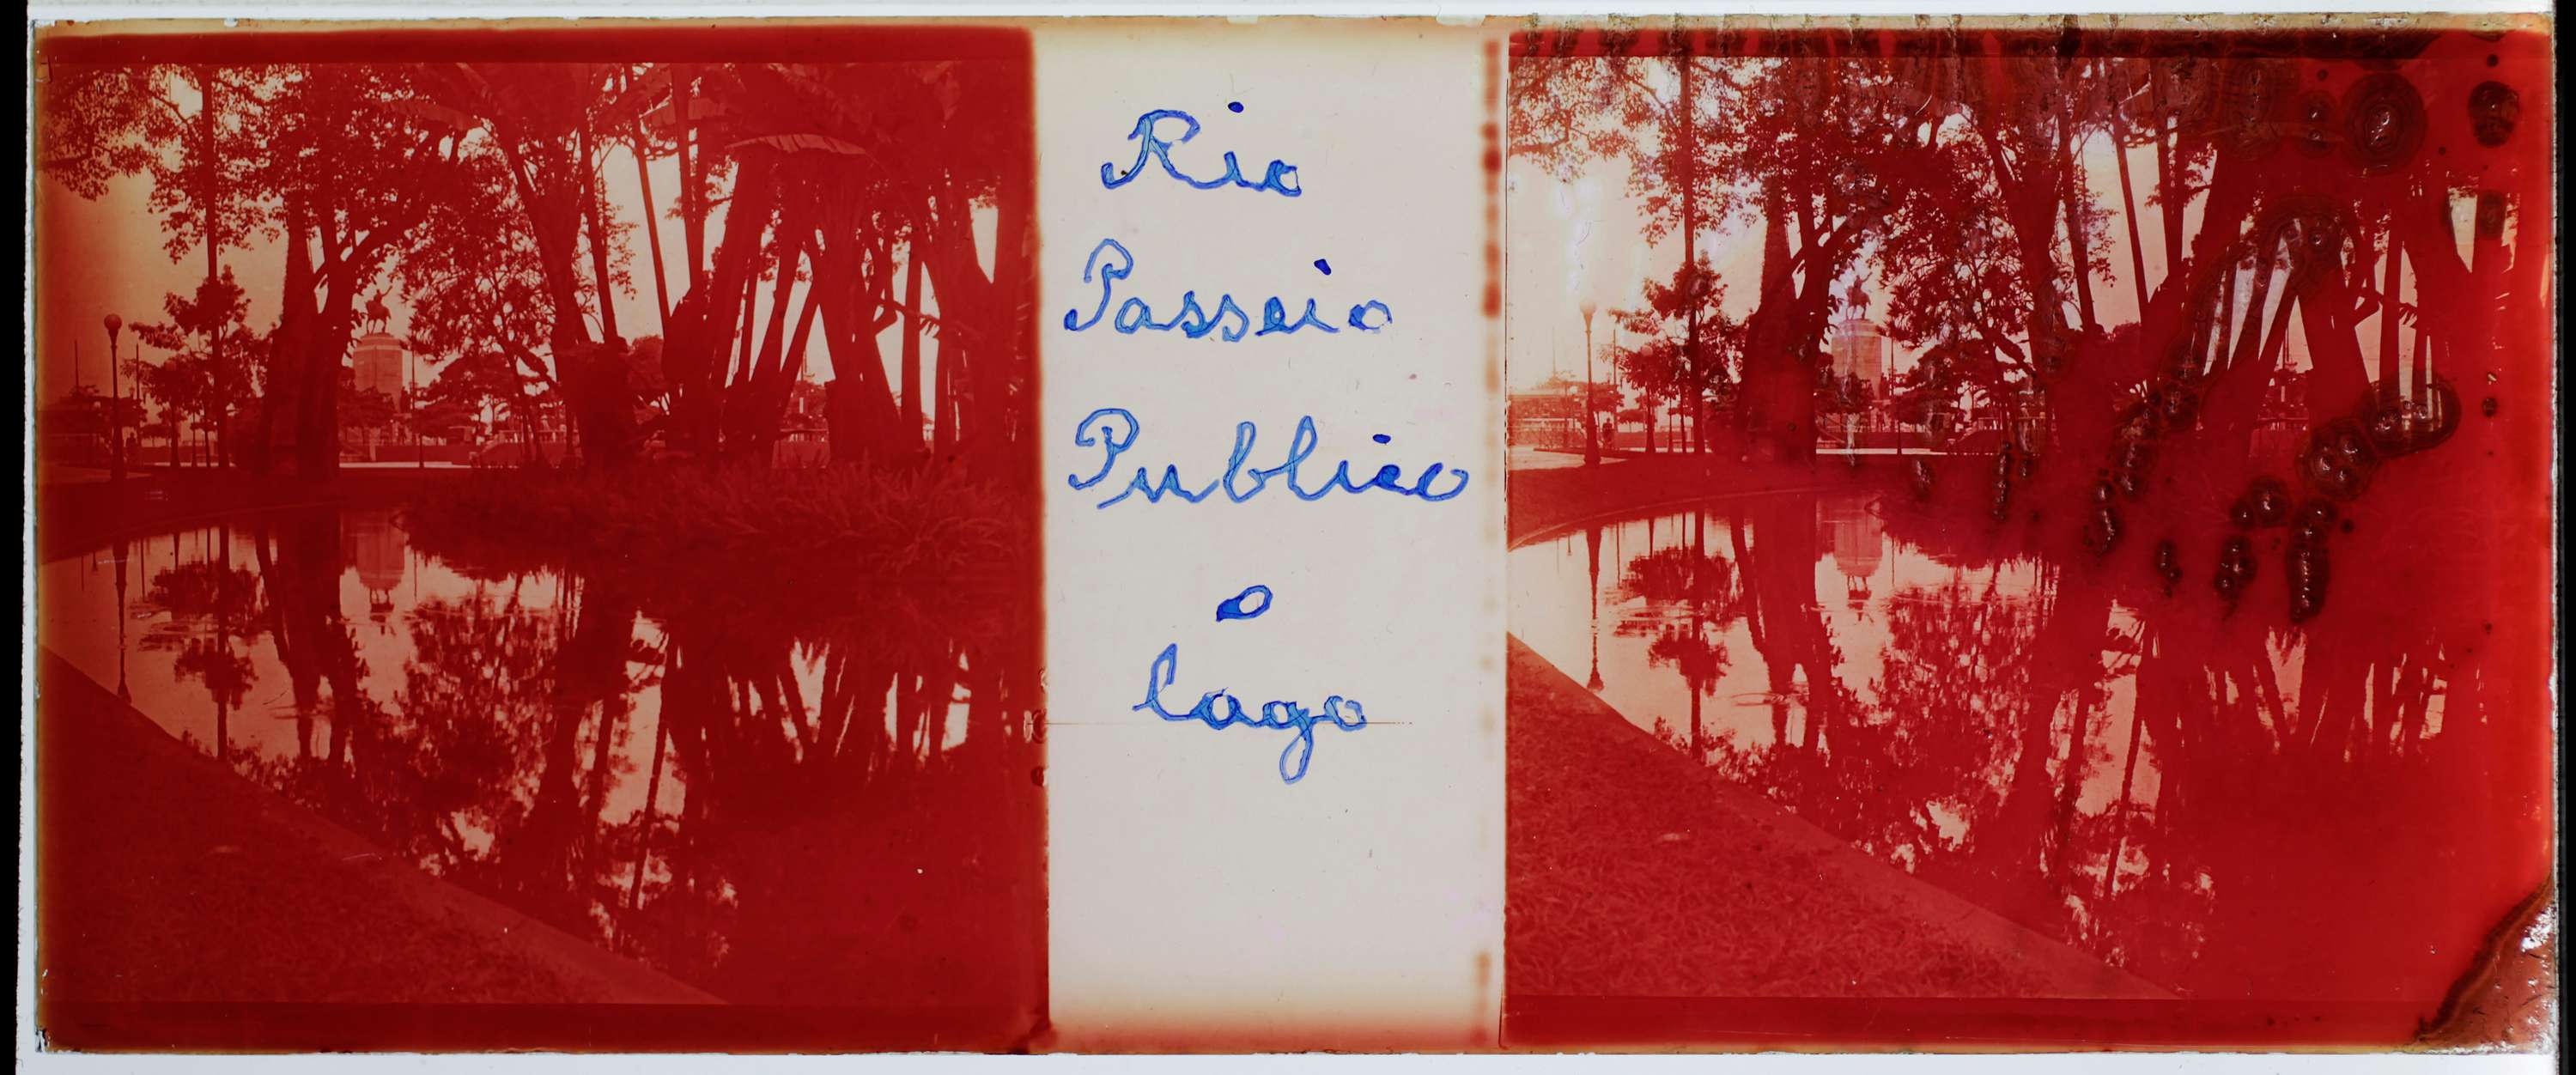 Rio
Passeio
Publico
o
lago